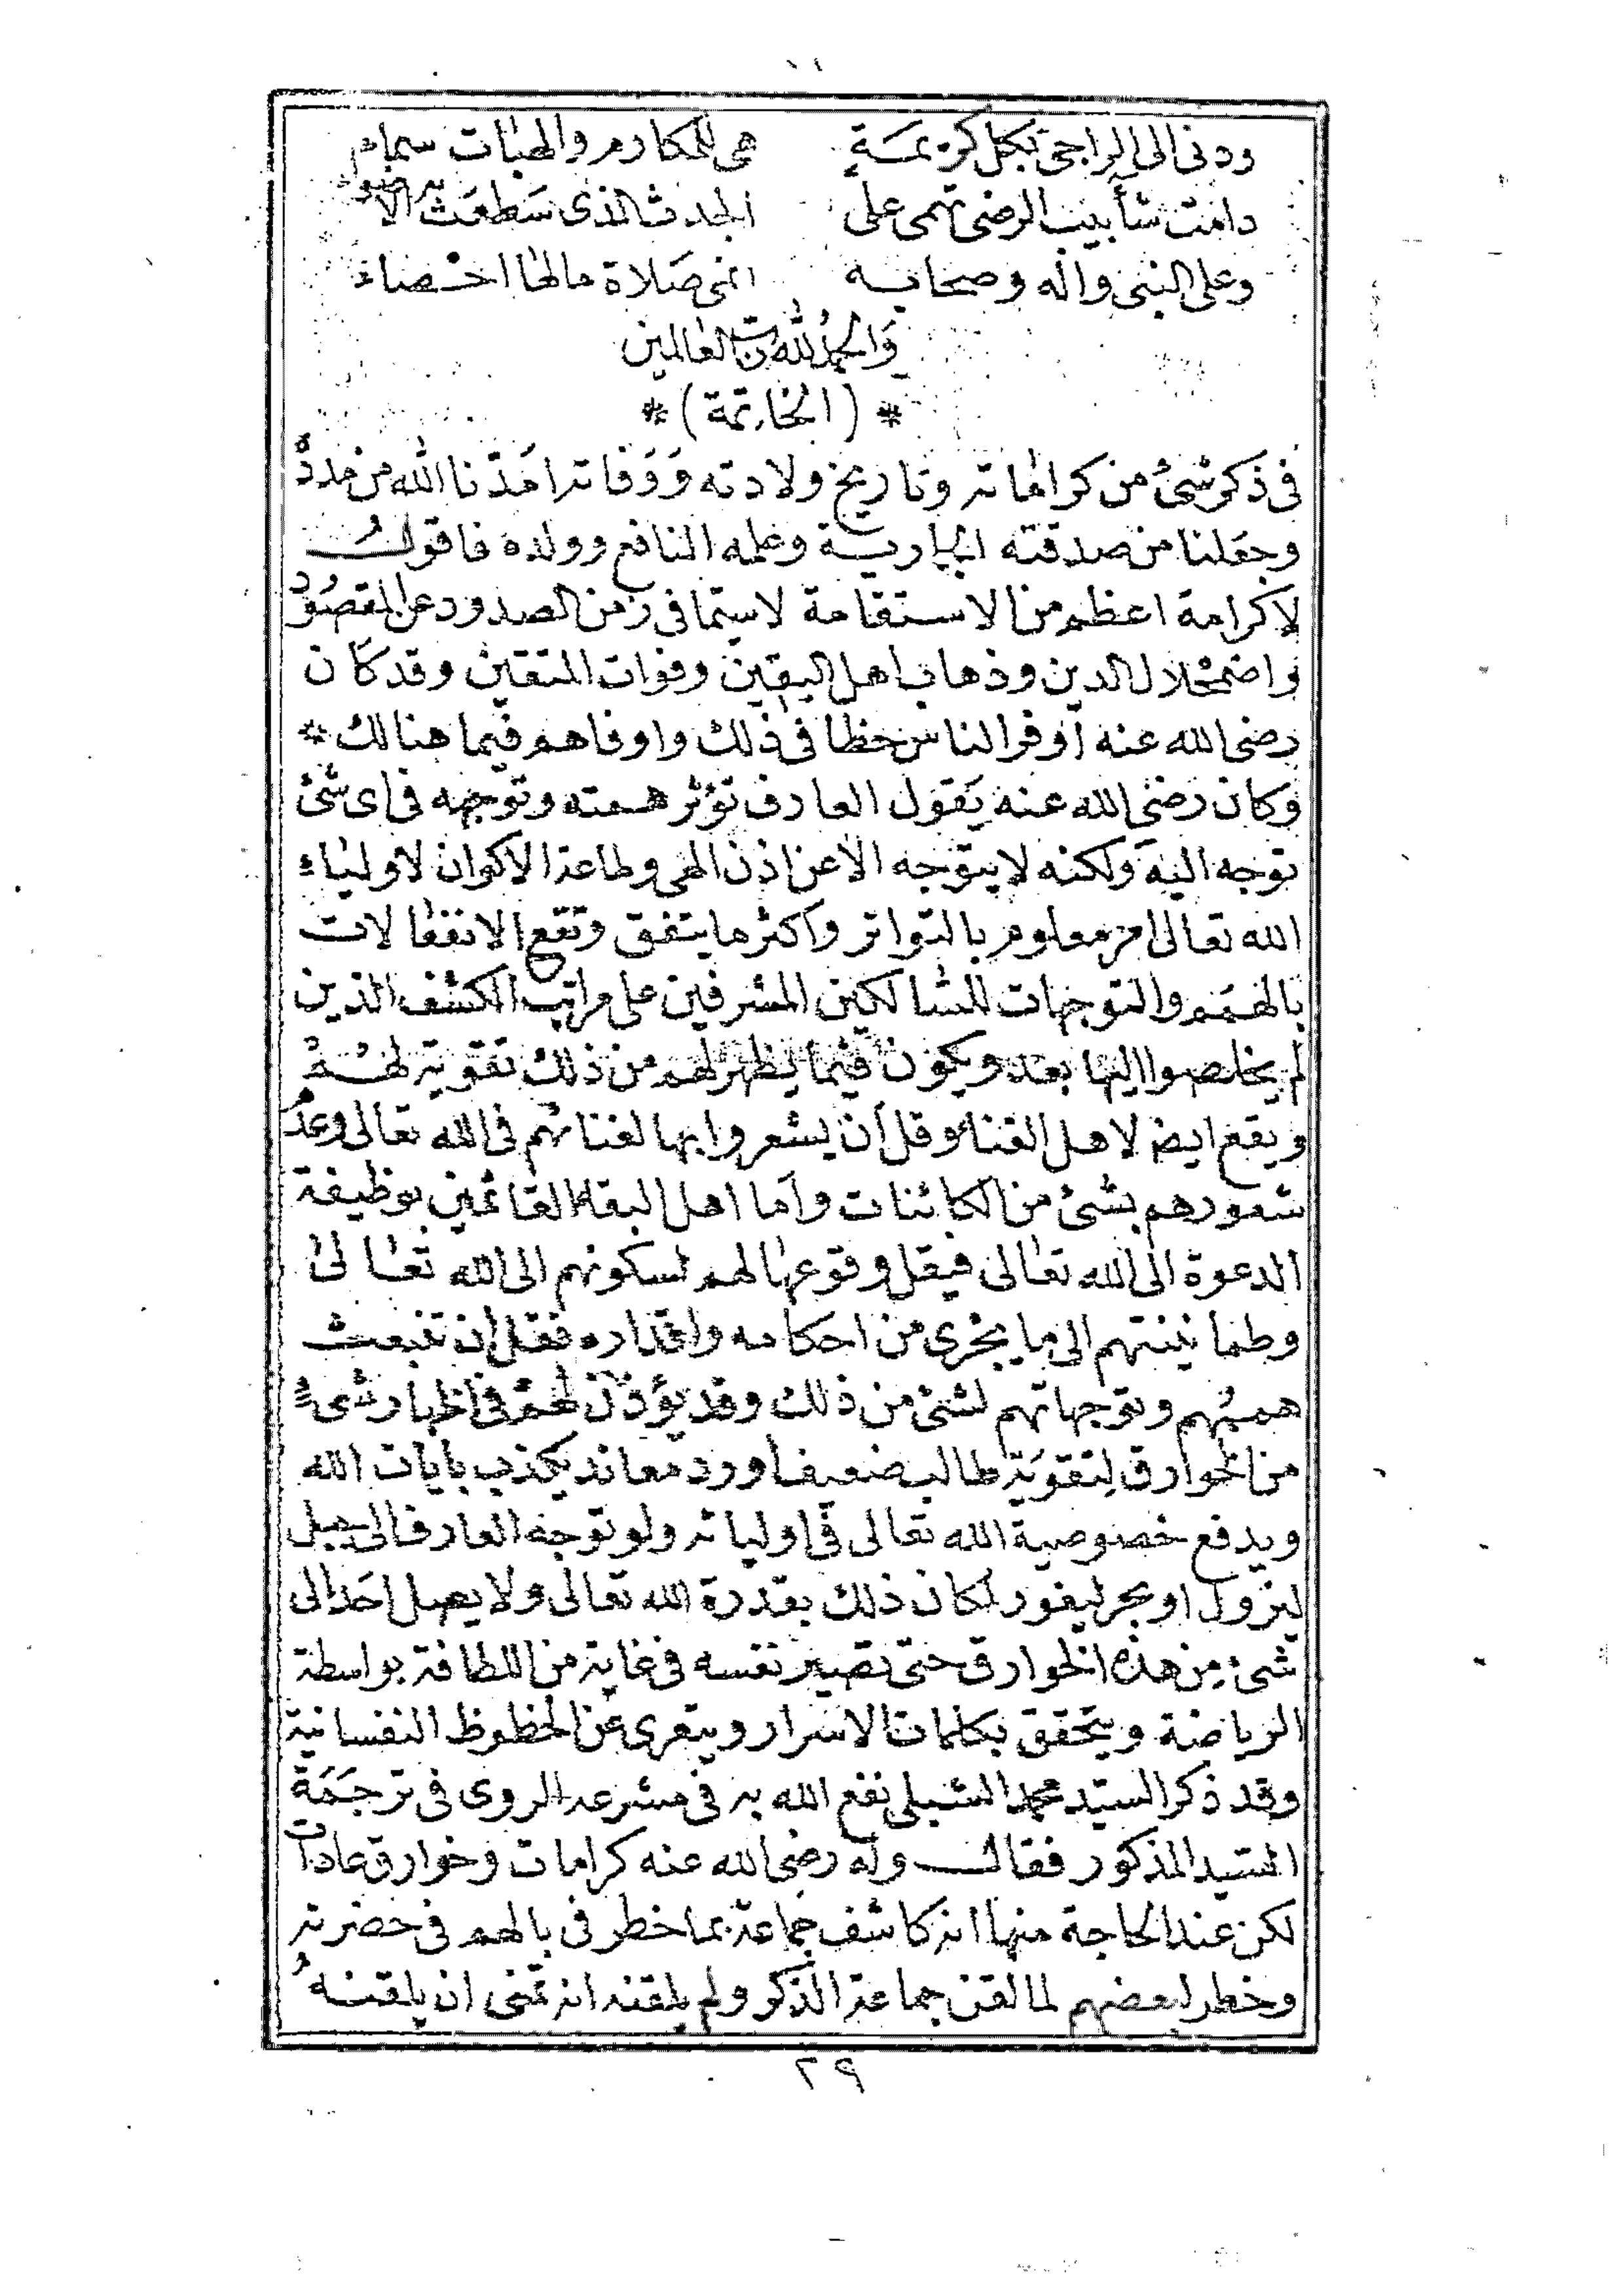 ودنى الى الراجى بكل كريمة هى للمكارم والهبات سمام
دامت شأبيب الرضى تهمى على الجدث الذى سطعت به الاضواء
وعلى النبى واله وصحابه انمى صلاة مالها احصاء
وَالحمدُ لله رب العالمين
* (الخاتمة) *
فى ذكر شئ من كراماته وتاريخ ولادته وَوَفاته امَدّنا الله من مدده
وجعَلنا من صدقته الجارية وعلمه النافع وولده فاقولُ
لاكرامة اعظم من الاستقامة لاسيما فى زمن الصدود عن المقصُود
واضمحلال الدين وذهاب اهل اليقين وفوات المتقين وقد كان
رضى الله عنه أوفر الناس حظا فى ذلك واوفاهم فيما هنالك *
وكان رضى الله عنه يَقول العارف تؤثر همته وتوجهه فى اى شئ
توجه اليه ولكنه لا يتوجه الاعن اذن الهى وطاعة الاكوان لاولياء
الله تعالى امر معلوم بالتواتر واكثر ما يتفق وتقع الانفعالات
بالهمَم والتوجهات للسالكين المشرفين على مراتب الكشف الذين
لم يخلصوا اليها بعد ويكون فيما يظهر لهم من ذلك تقوية لهُمْ
ويقع ايض لاهل الفناء وقل أن يشعروا بها لفنائهم فى الله تعالى وعدُم
شعورهم بشئ من الكائنات وأما اهل البقاء القائمين بوظيفة
الدعوة الى الله تعالى فيقل وقوعها لهم لسكونهم الى الله تعالى
وطمانينتهم الى ما يجرى من احكامه واقداره فقل ان تنبعث
هممهم وتوجهاتهم لشئ من ذلك وقد يؤذن لهم فى اظهار شئ
من الخوارق لتقوية طالب ضعيف اورد معاند يكذب بايات الله
ويدفع خصوصية الله تعالى فى اوليائه ولو توجه العارف الى جبل
ليزول او بحر ليغور لكان ذلك بقدرة الله تعالى ولا يصل احَد الى
شئ من هذه الخوارق حتى تصير نفسه فى غاية من اللطافة بواسطة
الرياضة ويتحقق بكلمات الاسرار ويتعرى عن الحظوظ النفسانية
وقد ذكر السيد محمد الشبلى نفع الله به فى مشرعه الروى فى ترجَمَة
السيد المذكور فقال وله رضى الله عنه كرامات وخوارق عادات
لكن عند الحاجة منها انه كاشف جماعة بما خطر فى بالهم فى حضرته
وخطر لبعضهم لما لقن جماعة الذكر ولم يلقنه انه تمنى ان يلقنهُ
٢٩